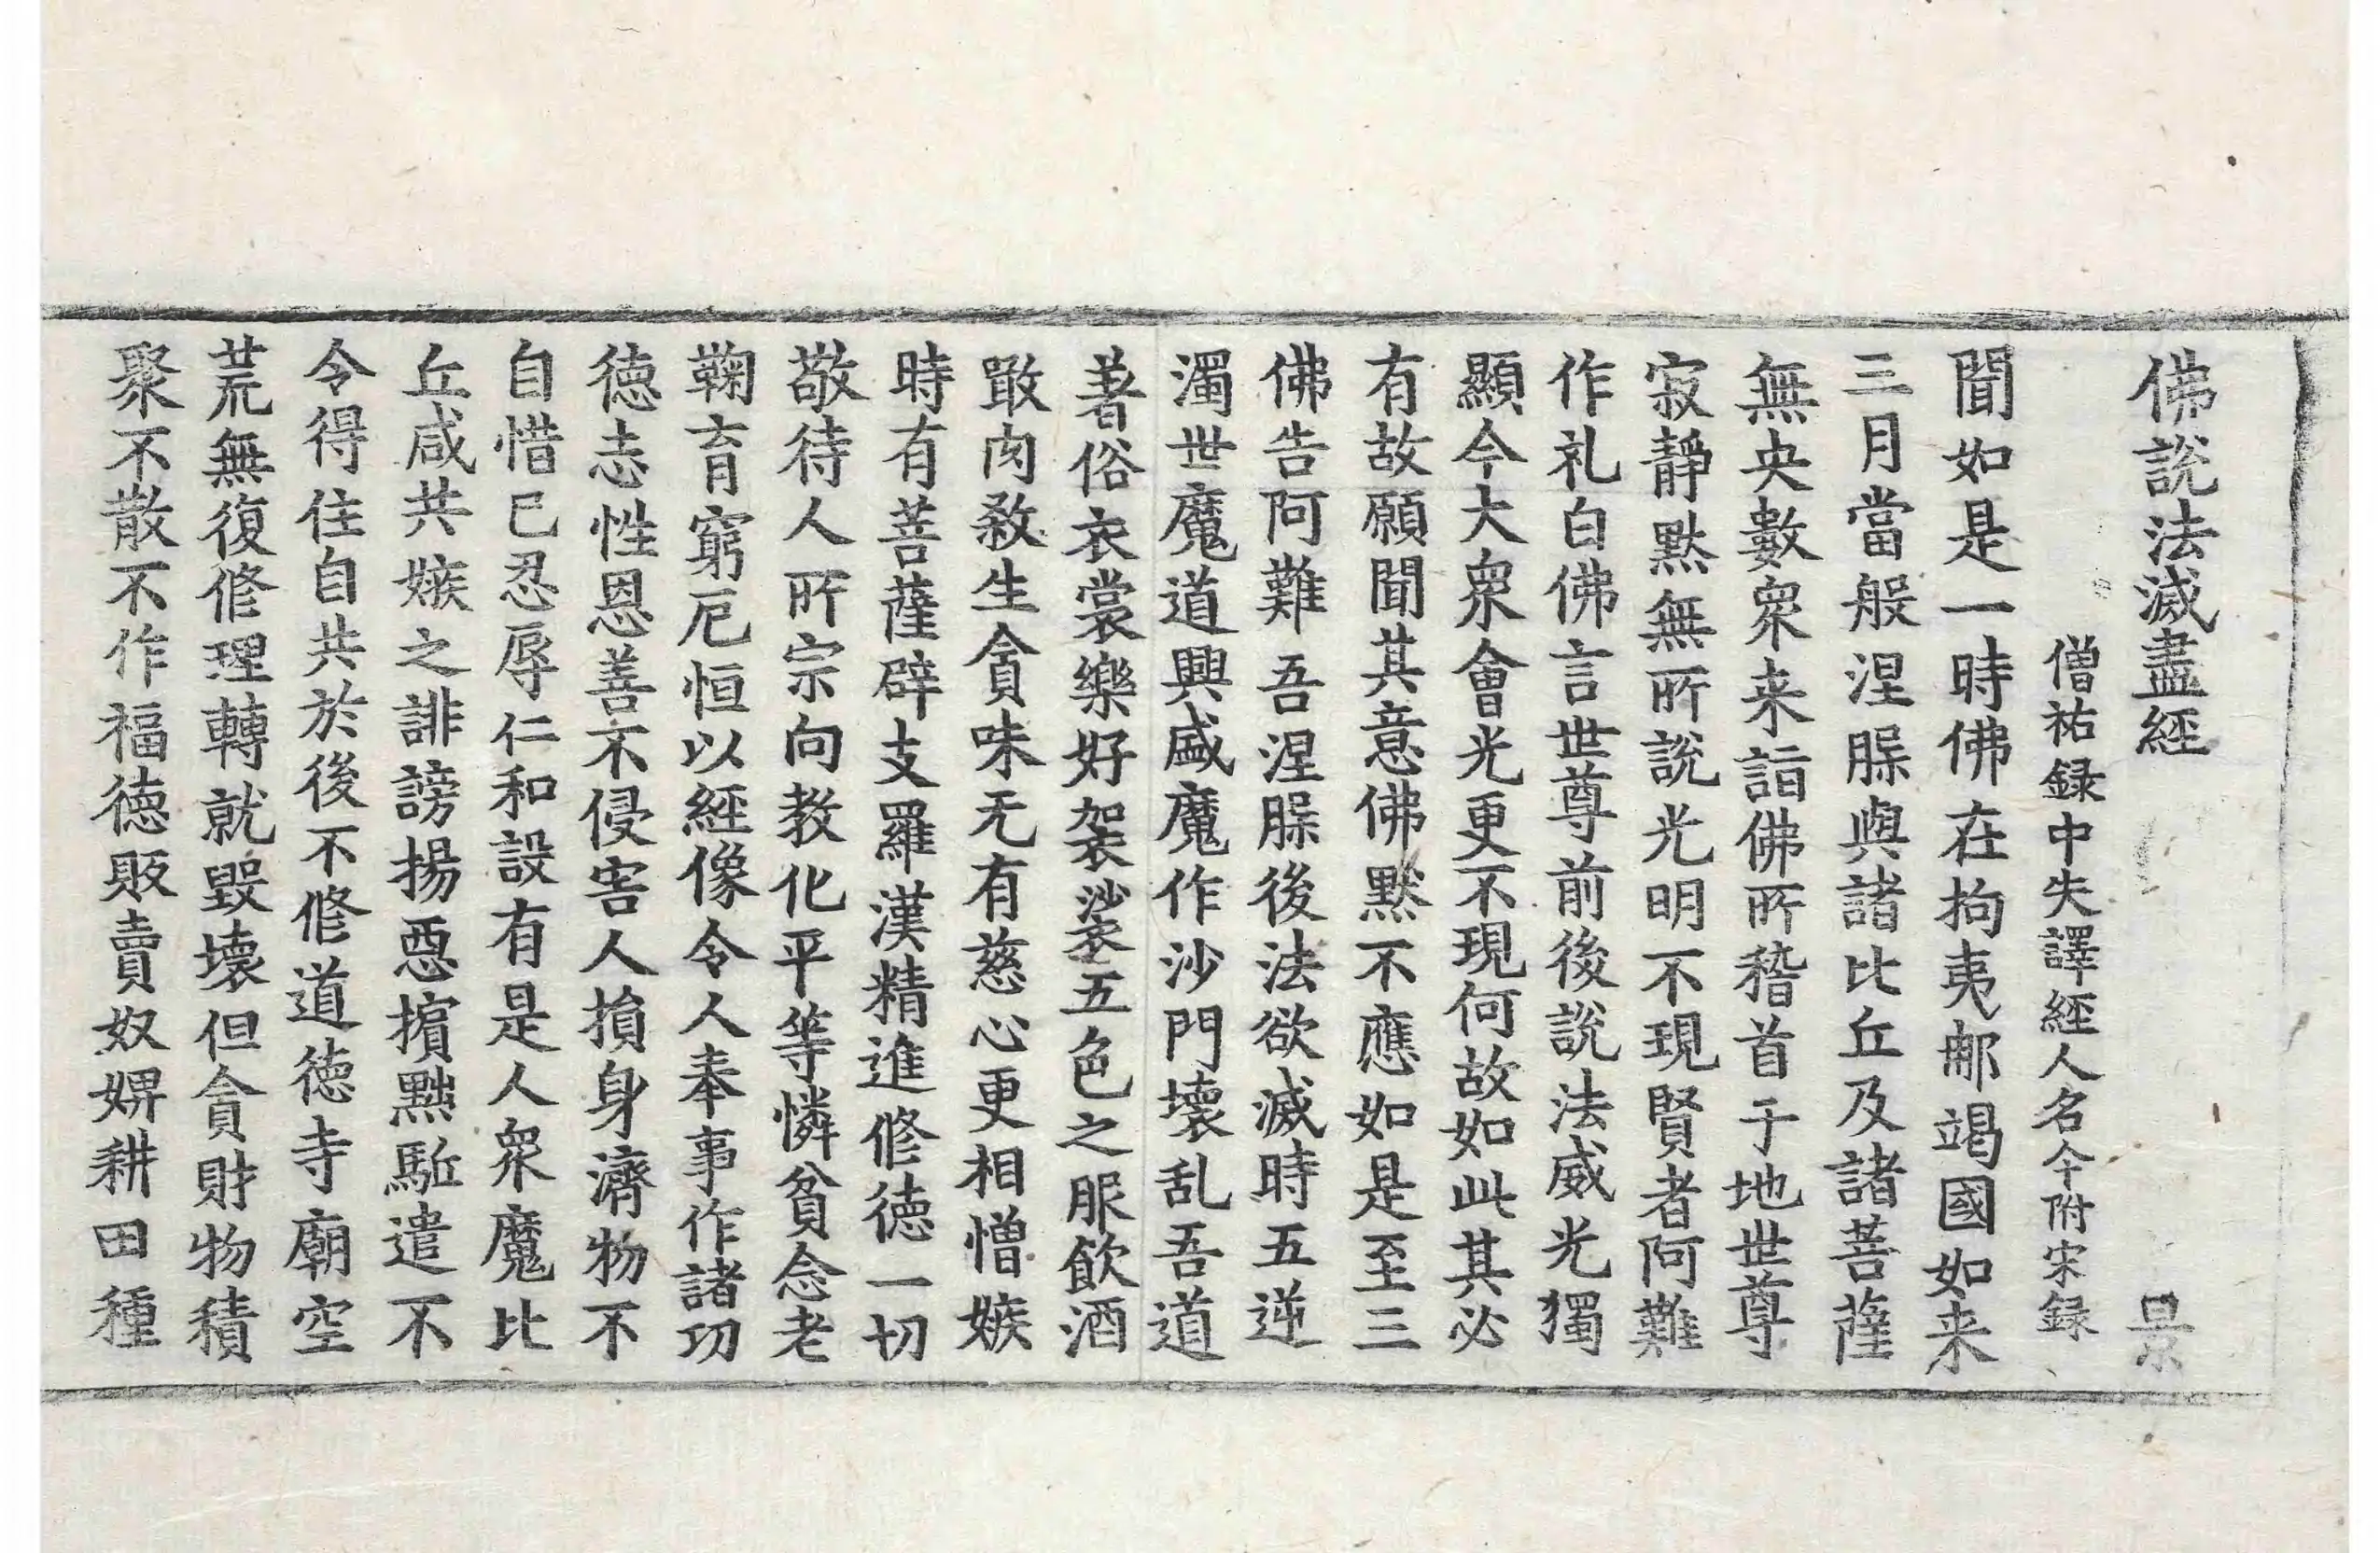 佛説法滅盡經　景
僧祐録中失譯經人名今附宋録
聞如是一時佛在拘夷那竭國如来
三月當般涅槃與諸比丘及諸菩薩
無央數衆来詣佛所稽首于地世尊
寂靜黙無所説光明不現賢者阿難
作礼白佛言世尊前後説法威光獨
顯今大衆會光更不現何故如此其必
有故願聞其意佛黙不應如是至三
佛告阿難吾涅槃後法欲滅時五逆
濁世魔道興盛魔作沙門壞乱吾道
著俗衣裳樂好袈裟五色之服飲酒
噉肉殺生貪味无有慈心更相憎嫉
時有菩薩辟支羅漢精進修德一切
敬待人所宗向教化平等憐貧念老
鞠育窮厄恒以經像令人奉事作諸功
德志性恩善不侵害人損身濟物不
自惜己忍辱仁和設有是人衆魔比
丘咸共嫉之誹謗揚惡擯黜駈遣不
令得住自共於後不修道德寺廟空
荒無復修理轉就毀壞但貪財物積
聚不散不作福德販賣奴婢耕田種